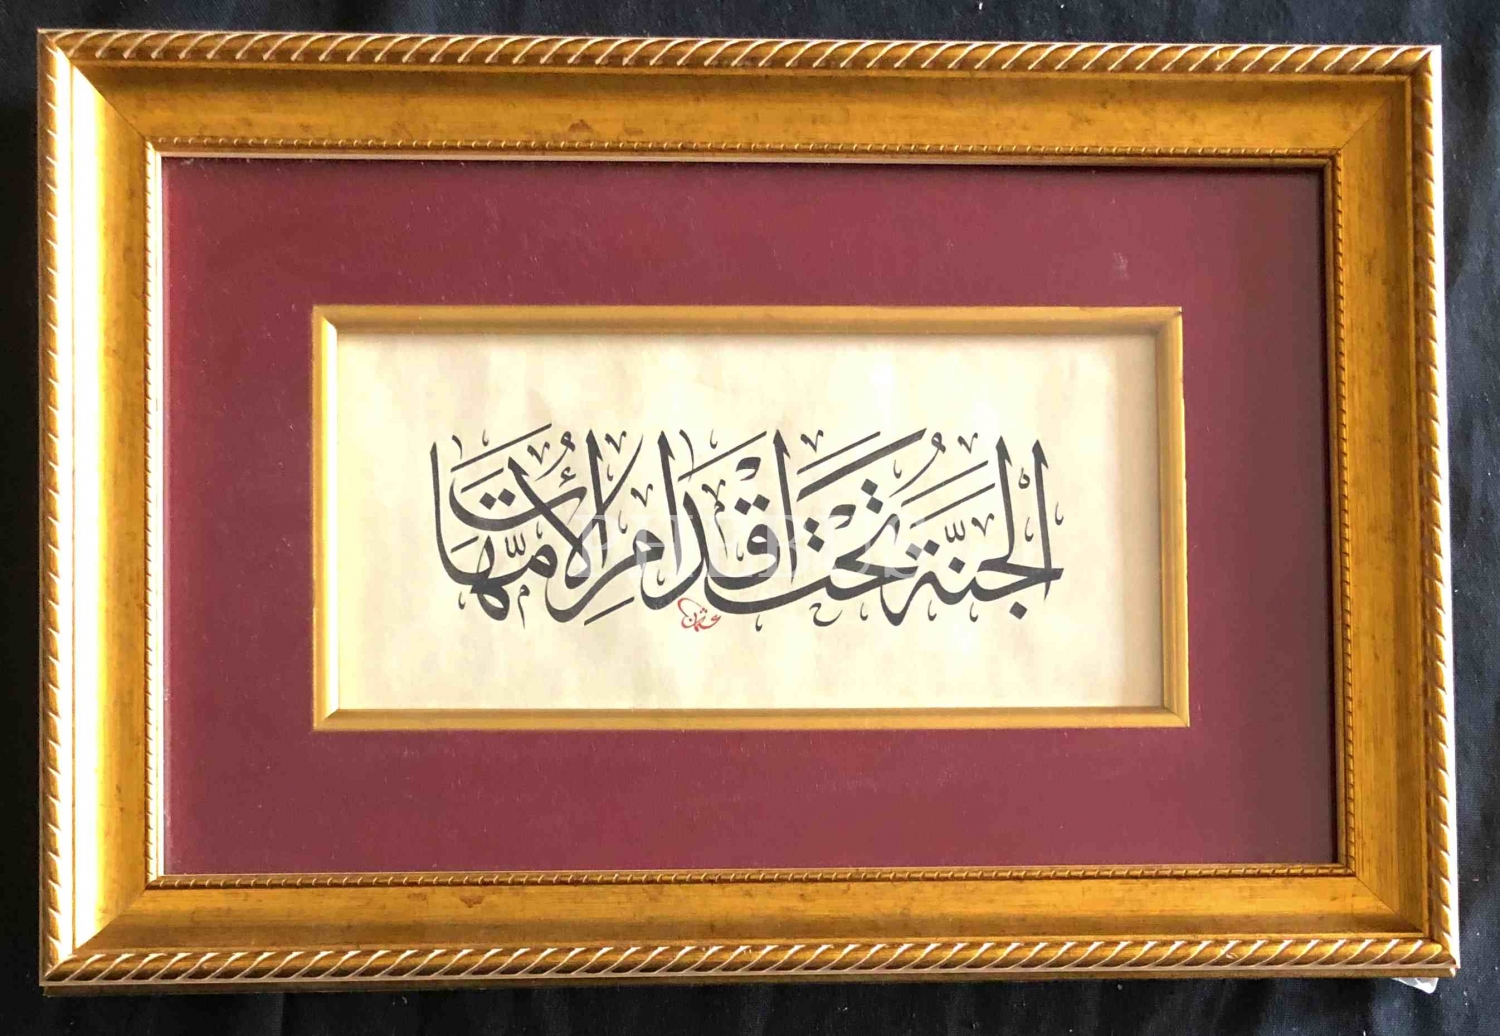 الجنّة تحت اقدام الأمّهات
عثمان